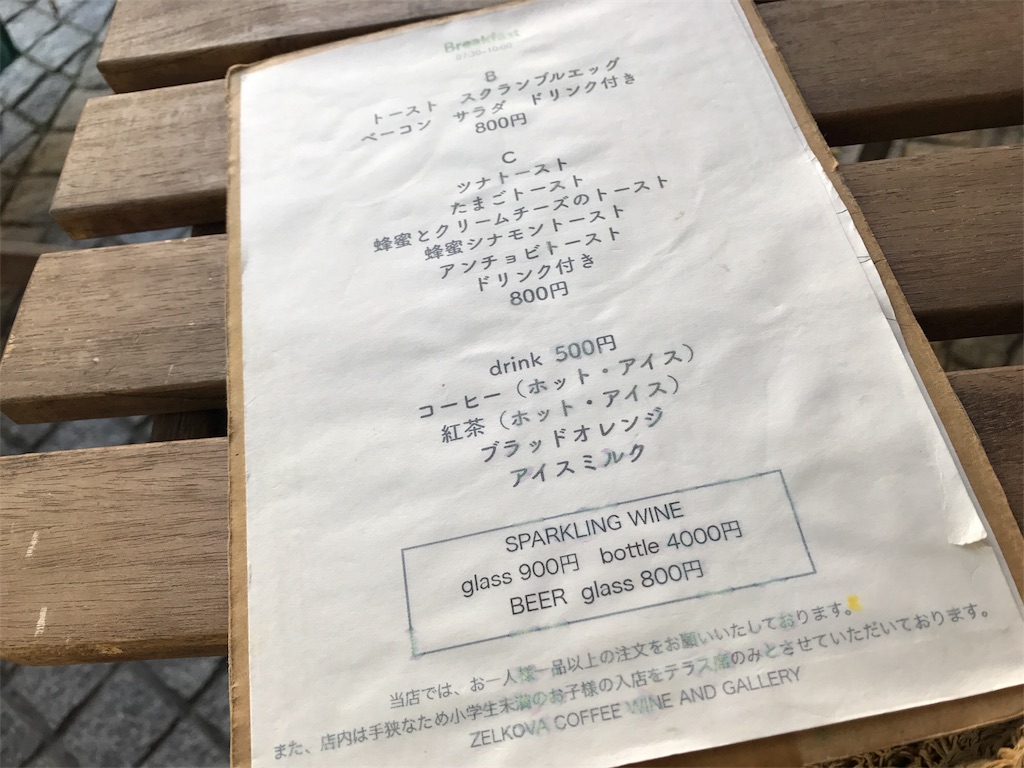 Breakfast
07:30~10:00
B
トースト スクランブルエッグ
ベーコン サラダ ドリンク付き
800円
C
ツナトースト
たまごトースト
蜂蜜とクリームチーズのトースト
蜂蜜シナモントースト
アンチョビトースト
ドリンク付き
800円
drink 500円
コーヒー（ホット・アイス）
紅茶（ホット・アイス）
ブラッドオレンジ
アイスミルク
SPARKLING WINE
glass 900円 bottle 4000円
BEER glass 800円
当店では、お一人様一品以上の注文をお願いいたしております。
また、店内は手狭なため小学生未満のお子様の入店をテラス席のみとさせていただいております。
ZELKOVA COFFEE WINE AND GALLERY